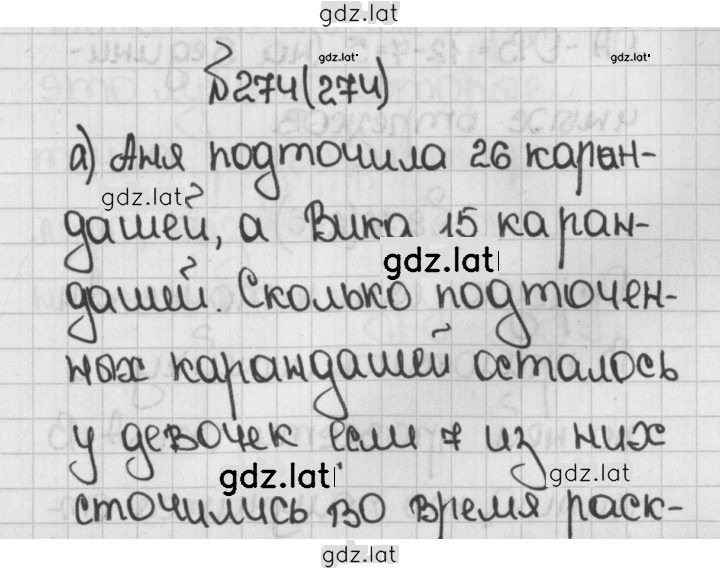 gdz.lat
gdz.lat
№274(274)
а) Аня подточила 26 каран-
gdz.lat
дашей, а Вика 15 каран-
gdz.lat
дашей. Сколько подточен-
gdz.lat
ных карандашей осталось
у девочек если 7 из них
gdz.lat
gdz.lat
сточились во время раск-
gdz.lat